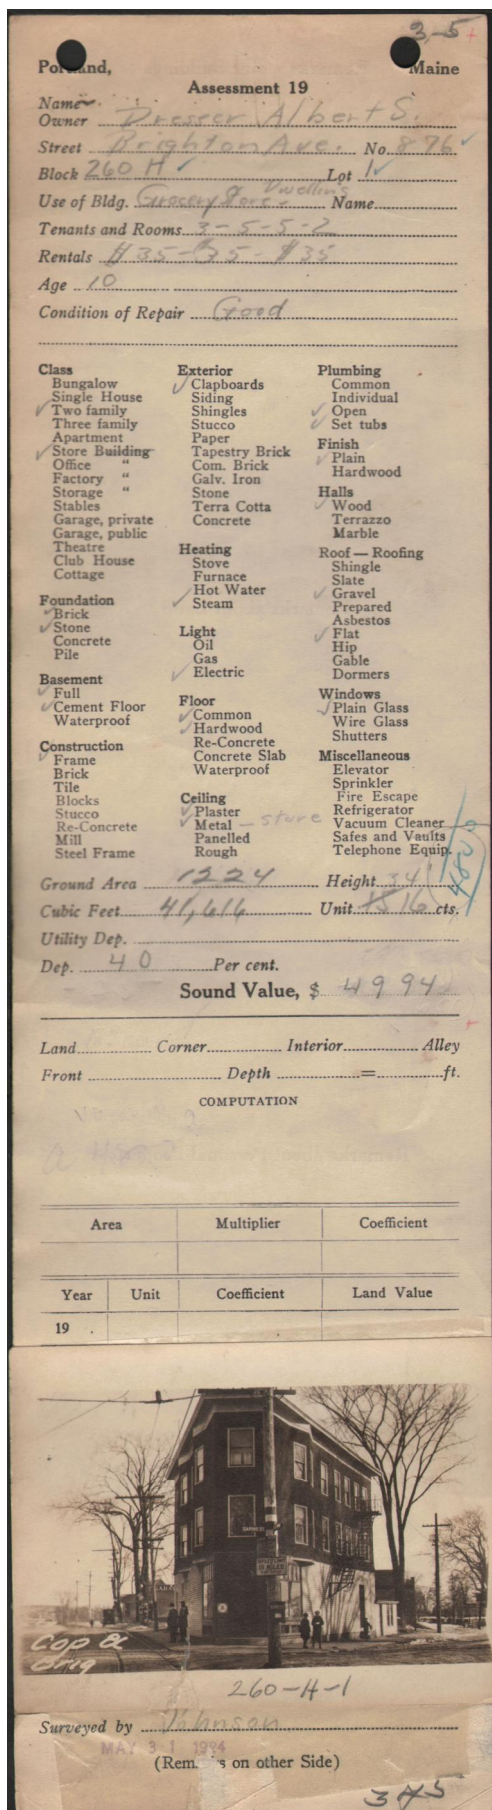 3-5 +
Portland, Maine
Assessment 19
Name
Owner Dresser Albert S.
Street Brighton Ave. No. 876
Block 260 H Lot 1
Use of Bldg. Grocery Store - Dwelling Name
Tenants and Rooms 3-5-5-2
Rentals $35-$35-$35
Age 10
Condition of Repair Good
Class
Bungalow
Single House
✓ Two family
Three family
Apartment
✓ Store Building
Office "
Factory "
Storage "
Stables
Garage, private
Garage, public
Theatre
Club House
Cottage
Foundation
✓ Brick
✓ Stone
Concrete
Pile
Basement
✓ Full
✓ Cement Floor
Waterproof
Construction
✓ Frame
Brick
Tile
Blocks
Stucco
Re-Concrete
Mill
Steel Frame
Exterior
✓ Clapboards
Siding
Shingles
Stucco
Paper
Tapestry Brick
Com. Brick
Galv. Iron
Stone
Terra Cotta
Concrete
Heating
Stove
Furnace
Hot Water
✓ Steam
Light
Oil
Gas
✓ Electric
Floor
✓ Common
✓ Hardwood
Re-Concrete
Concrete Slab
Waterproof
Ceiling
✓ Plaster
✓ Metal - store
Panelled
Rough
Plumbing
Common
Individual
✓ Open
✓ Set tubs
Finish
✓ Plain
Hardwood
Halls
✓ Wood
Terrazzo
Marble
Roof — Roofing
Shingle
Slate
✓ Gravel
Prepared
Asbestos
✓ Flat
Hip
Gable
Dormers
Windows
✓ Plain Glass
Wire Glass
Shutters
Miscellaneous
Elevator
Sprinkler
Fire Escape
Refrigerator
Vacuum Cleaner
Safes and Vaults
Telephone Equip.
4800
Ground Area 1224 Height 34'
Cubic Feet 41,616 Unit 15 16 cts.
Utility Dep.
Dep. 40 Per cent.
Sound Value, $ 4994
Land Corner Interior Alley
Front Depth = ft.
COMPUTATION
Area Multiplier Coefficient
Year Unit Coefficient Land Value
19
Cop &
Brig
260-H-1
Surveyed by Johnson
MAY 31 1924
(Remarks on other Side)
345